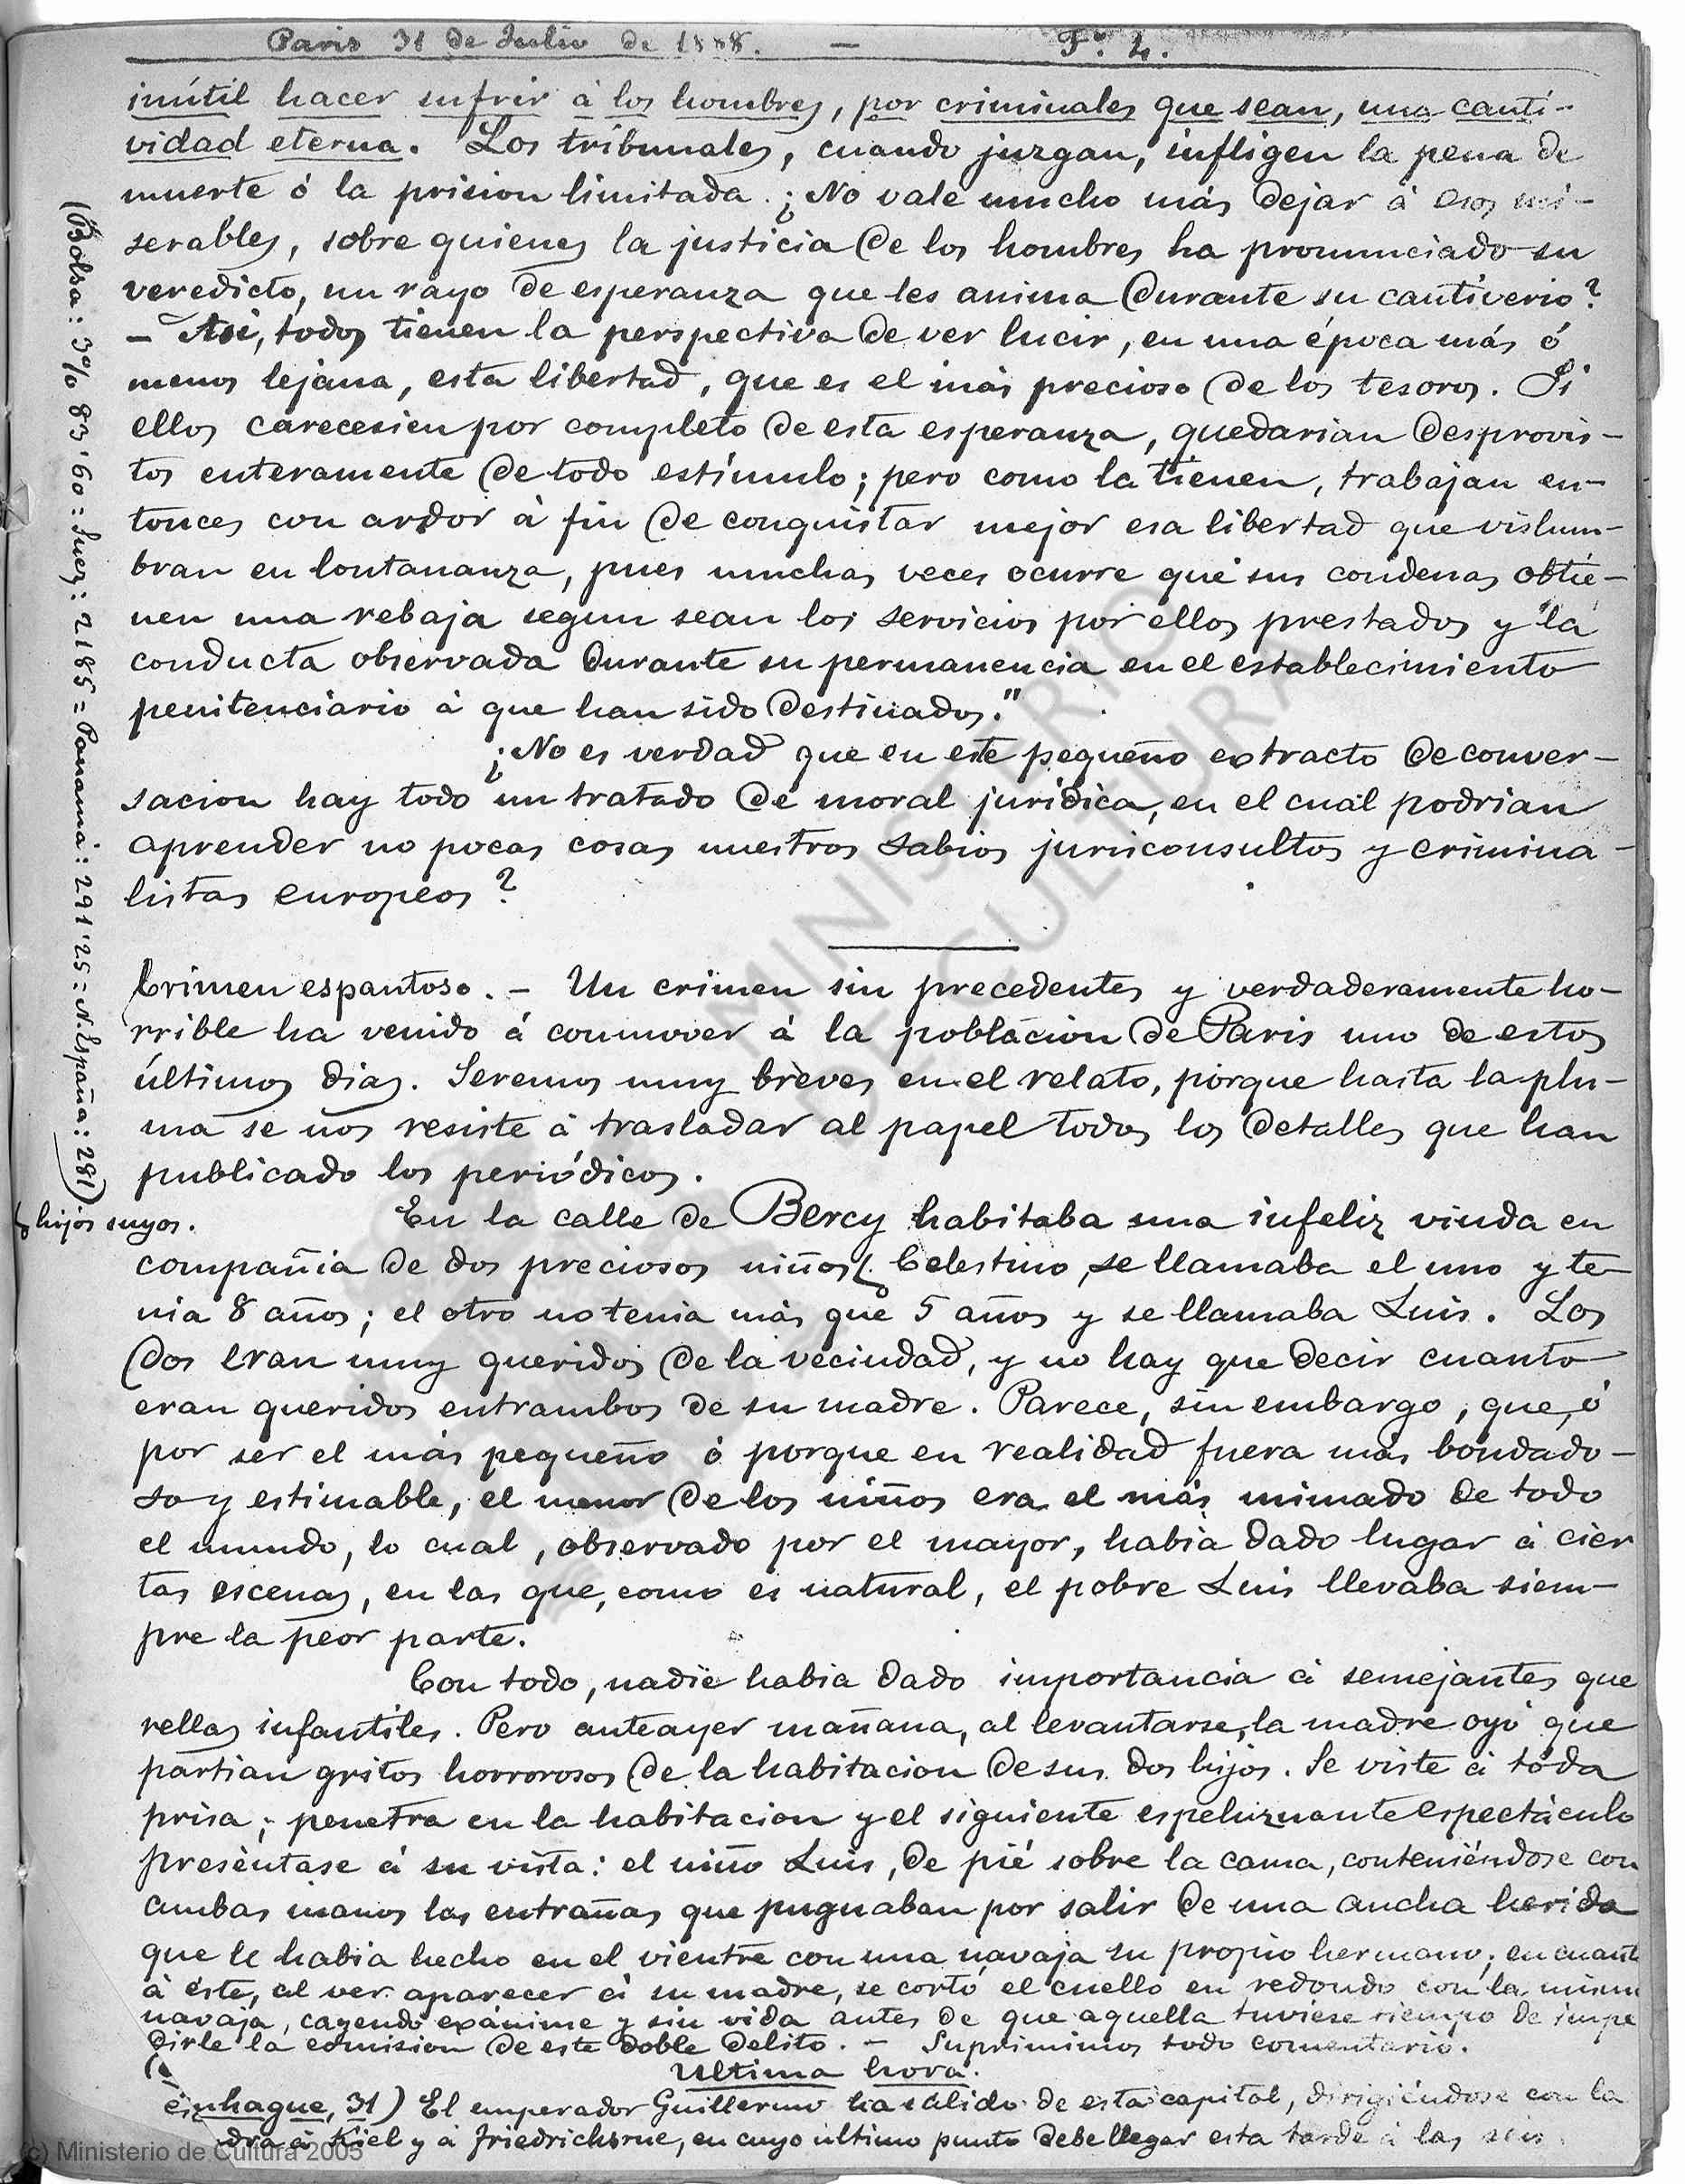 Paris 31 de Julio de 1888. — Fº. 4.
inútil hacer sufrir á los hombres, por criminales que sean, una cauti-
vidad eterna. Los tribunales, cuando juzgan, infligen la pena de
muerte ó la prision limitada. ¿No vale mucho más dejar á esos mi-
serables, sobre quienes la justicia de los hombres ha pronunciado su
veredicto, un rayo de esperanza que les anima durante su cautiverio?
— Asi, todos tienen la perspectiva de ver lucir, en una época más ó
menos lejana, esta libertad, que es el más precioso de los tesoros. Si
ellos careciesen por completo de esta esperanza, quedarian desprovis-
tos enteramente de todo estímulo; pero como la tienen, trabajan en-
tonces con ardor á fin de conquistar mejor esa libertad que vislum-
bran en lontananza, pues muchas veces ocurre que sus condenas obtie-
nen una rebaja segun sean los servicios por ellos prestados y la
conducta observada durante su permanencia en el establecimiento
penitenciario á que han sido destinados."
¿No es verdad que en este pequeño extracto de conver-
sacion hay todo un tratado de moral jurídica, en el cual podrian
aprender no pocas cosas nuestros sabios jurisconsultos y crimina-
listas europeos?
(Bolsa: 3% 83'60: Suez: 2185= Panamá: 291'25: N. España: 281)
Crimen espantoso. — Un crimen sin precedentes y verdaderamente ho-
rrible ha venido á conmover á la poblacion de Paris uno de estos
últimos dias. Seremos muy breves en el relato, porque hasta la plu-
ma se nos resiste á trasladar al papel todos los detalles que han
publicado los periódicos.
hijos suyos.
En la calle de Bercy habitaba una infeliz viuda en
compañia de dos preciosos niños. Celestino, se llamaba el uno y te-
nia 8 años; el otro no tenia más que 5 años y se llamaba Luis. Los
dos eran muy queridos de la vecindad, y no hay que decir cuanto
eran queridos entrambos de su madre. Parece, sin embargo, que, ó
por ser el más pequeño ó porque en realidad fuera más bondado-
so y estimable, el menor de los niños era el más mimado de todo
el mundo, lo cual, observado por el mayor, habia dado lugar á cier
tas escenas, en las que, como es natural, el pobre Luis llevaba siem-
pre la peor parte.
Con todo, nadie habia dado importancia á semejantes que
rellas infantiles. Pero anteayer mañana, al levantarse, la madre oyó que
partian gritos horrorosos de la habitacion de sus dos hijos. Se viste á toda
prisa; penetra en la habitacion y el siguiente espeluznante espectáculo
preséntase á su vista: el niño Luis, de pié sobre la cama, conteniéndose con
ambas manos las entrañas que pugnaban por salir de una ancha herida
que le habia hecho en el vientre con una navaja su propio hermano; en cuant
á éste, al ver aparecer á su madre, se cortó el cuello en redondo con la mism
navaja, cayendo exánime y sin vida antes de que aquella tuviese tiempo de impe
dirle la comision de este doble delito. — Suprimimos todo comentario.
Ultima hora.
enhague, 31) El emperador Guillermo ha salido de esta capital, dirigiéndose con la
á Kiel y á Friedrichsrue, en cuyo último punto debe llegar esta tarde á las seis.
(c) Ministerio de Cultura 2005
MINISTERIO
DE CULTURA